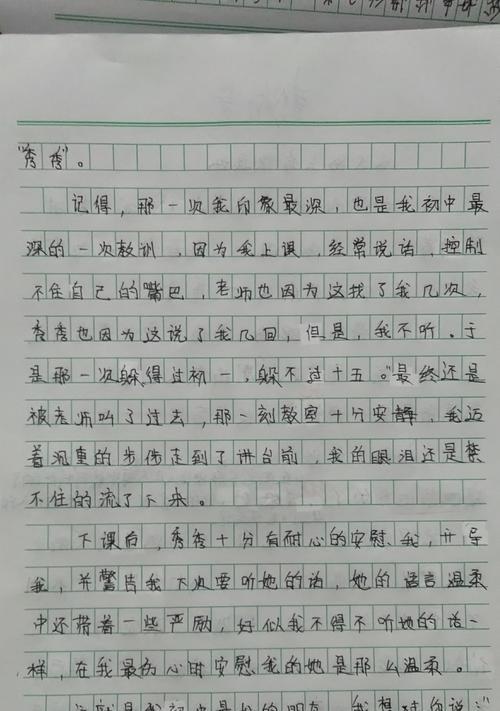 "秀秀"。
记得，那一次我印象最深，也是我初中最
深的一次教训，因为我上课，经常说话，控制
不住自己的嘴巴，老师也因为这找了我几次，
秀秀也因为这说了我几回，但是，我不听。于
是那一次躲得过初一，躲不过十五。"最终还是
被老师叫了过去，那一刻教室十分安静，我迈
着沉重的步伐走到了讲台前，我的眼泪还是禁
不住的流了下来。
下课后，秀秀十分有耐心的安慰我，开导
我，并警告我下次要听她的话，她的语言温柔
中还带着一些严励，好似我不得不听她的话一
样，在我最伤心时安慰我的她是那么温柔。
我想对你说："